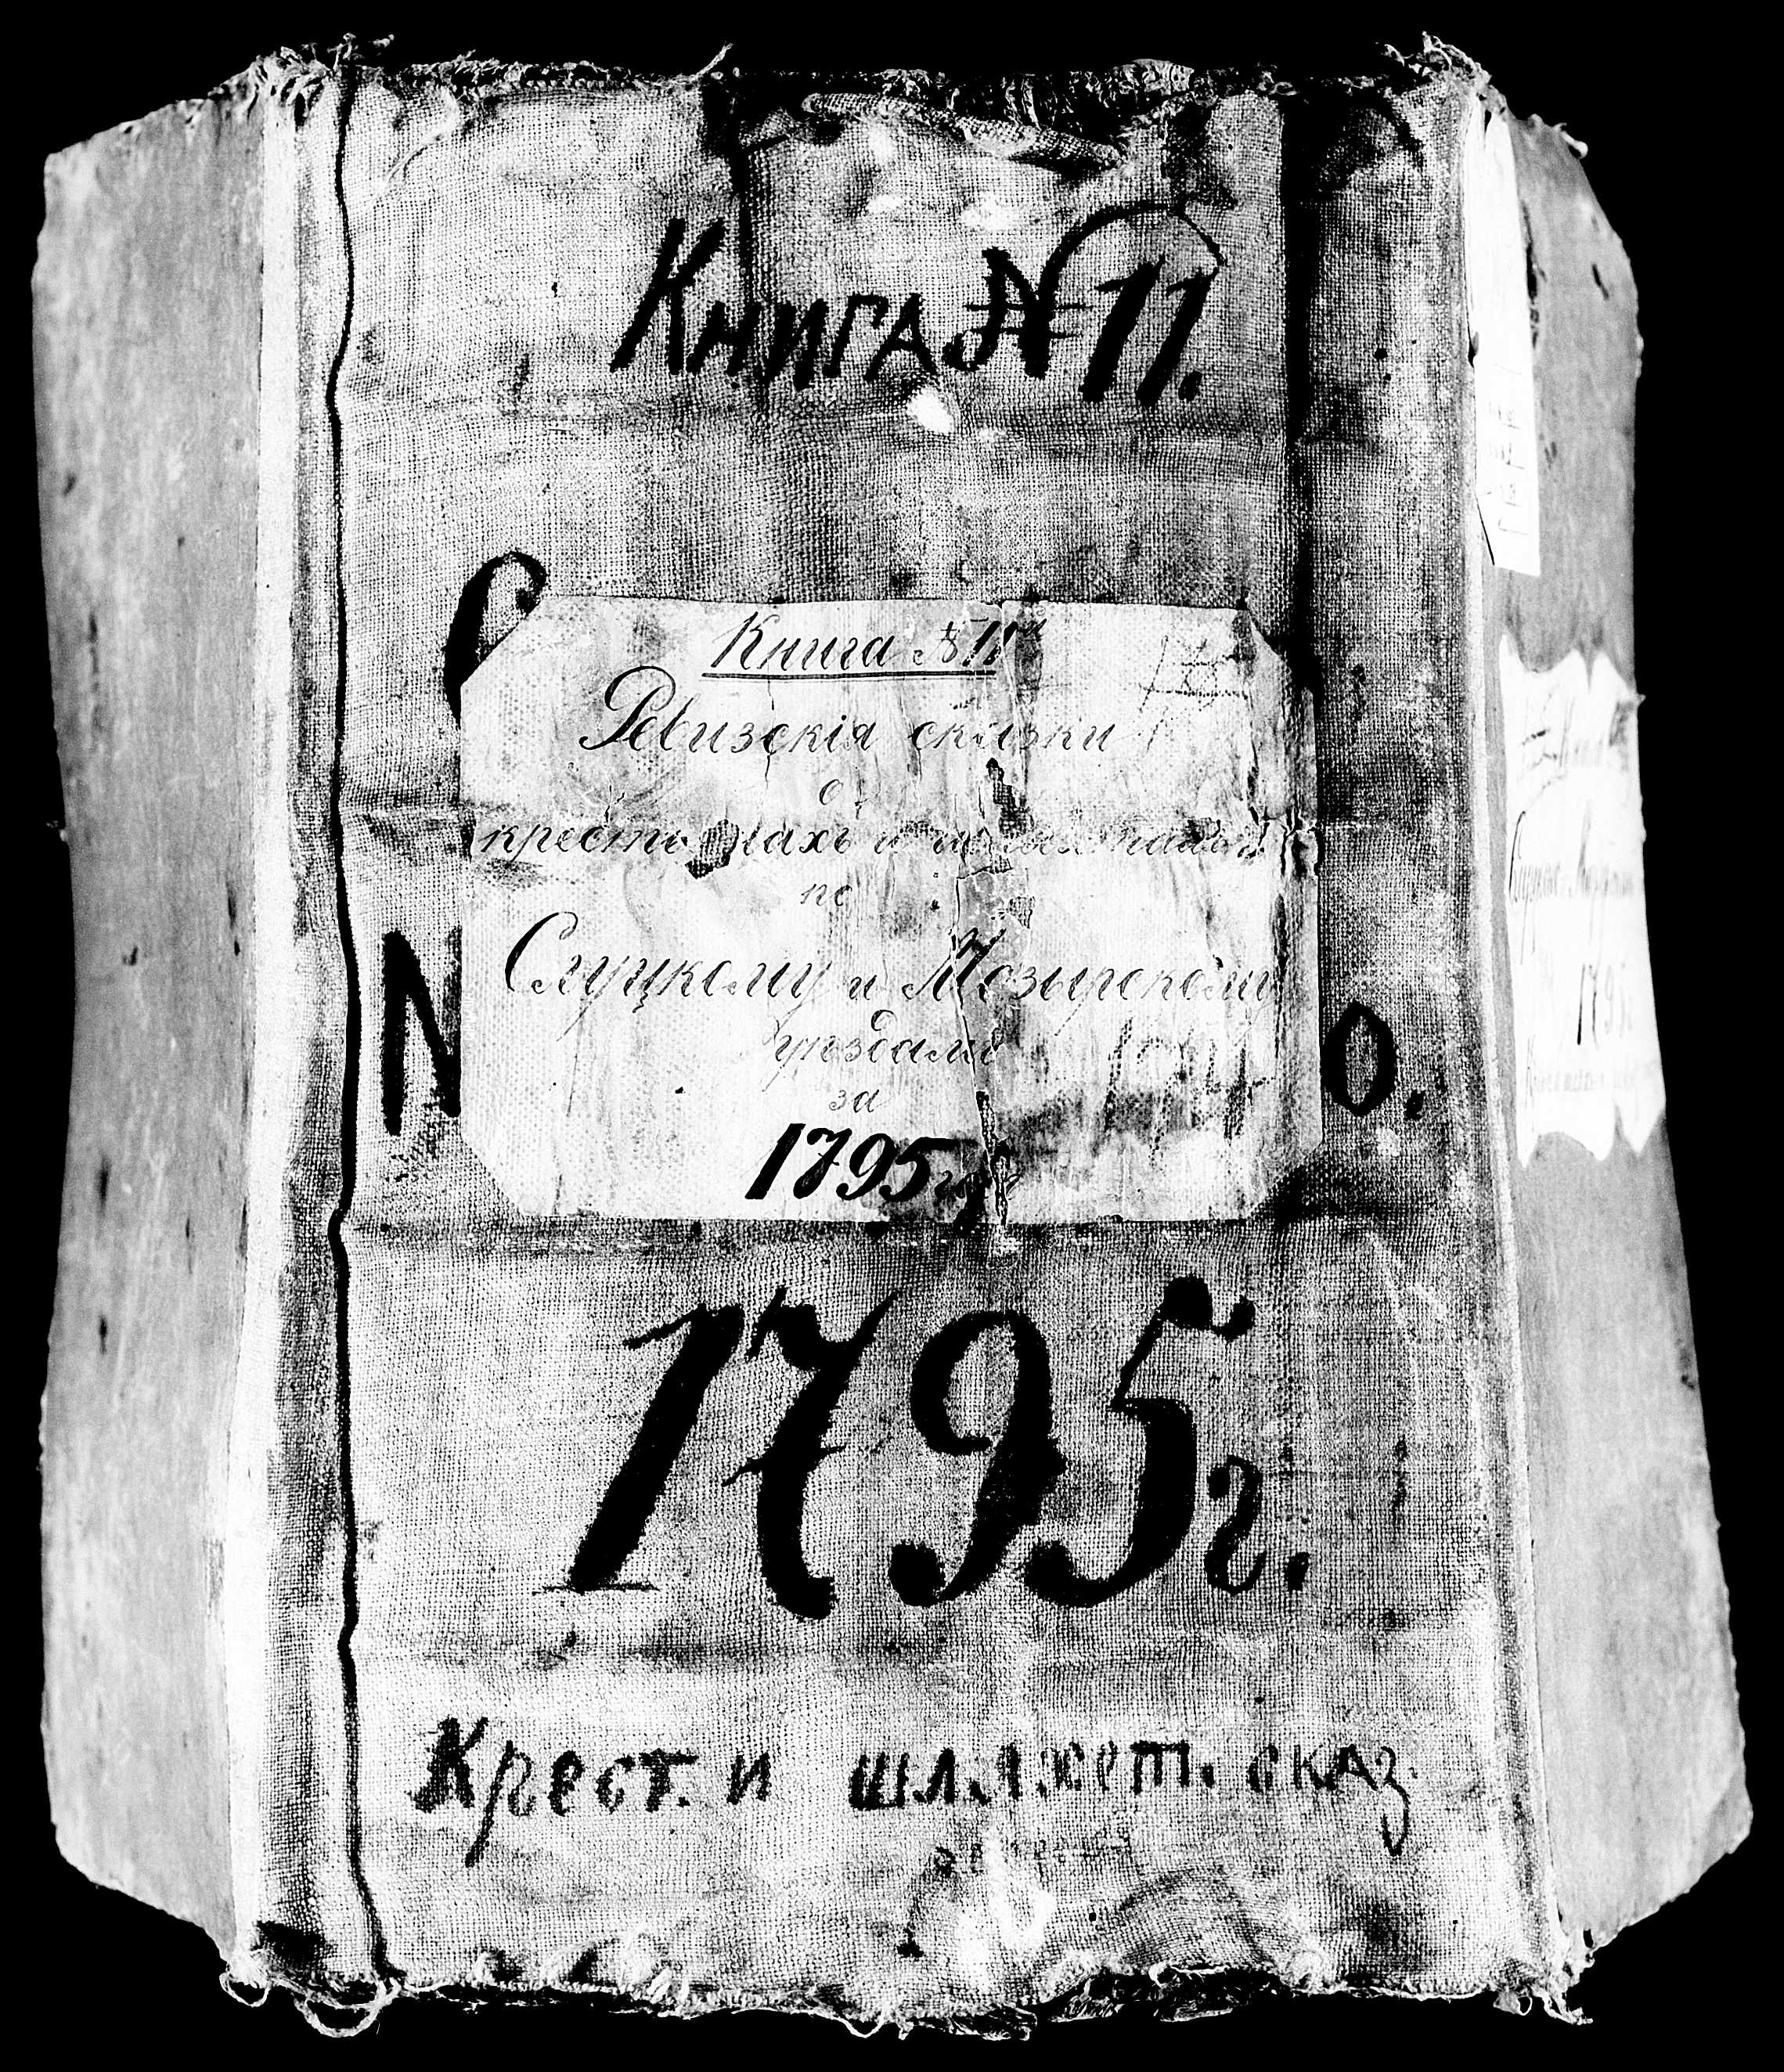 Книга № 11.
С
Книга № 11
Ревизскія сказки
о
крестьянахъ и
по
Слуцкому и Мозырскому
уѣздамъ
за
1795
М
о.
1795 г.
Крест. и шляхет. сказ.